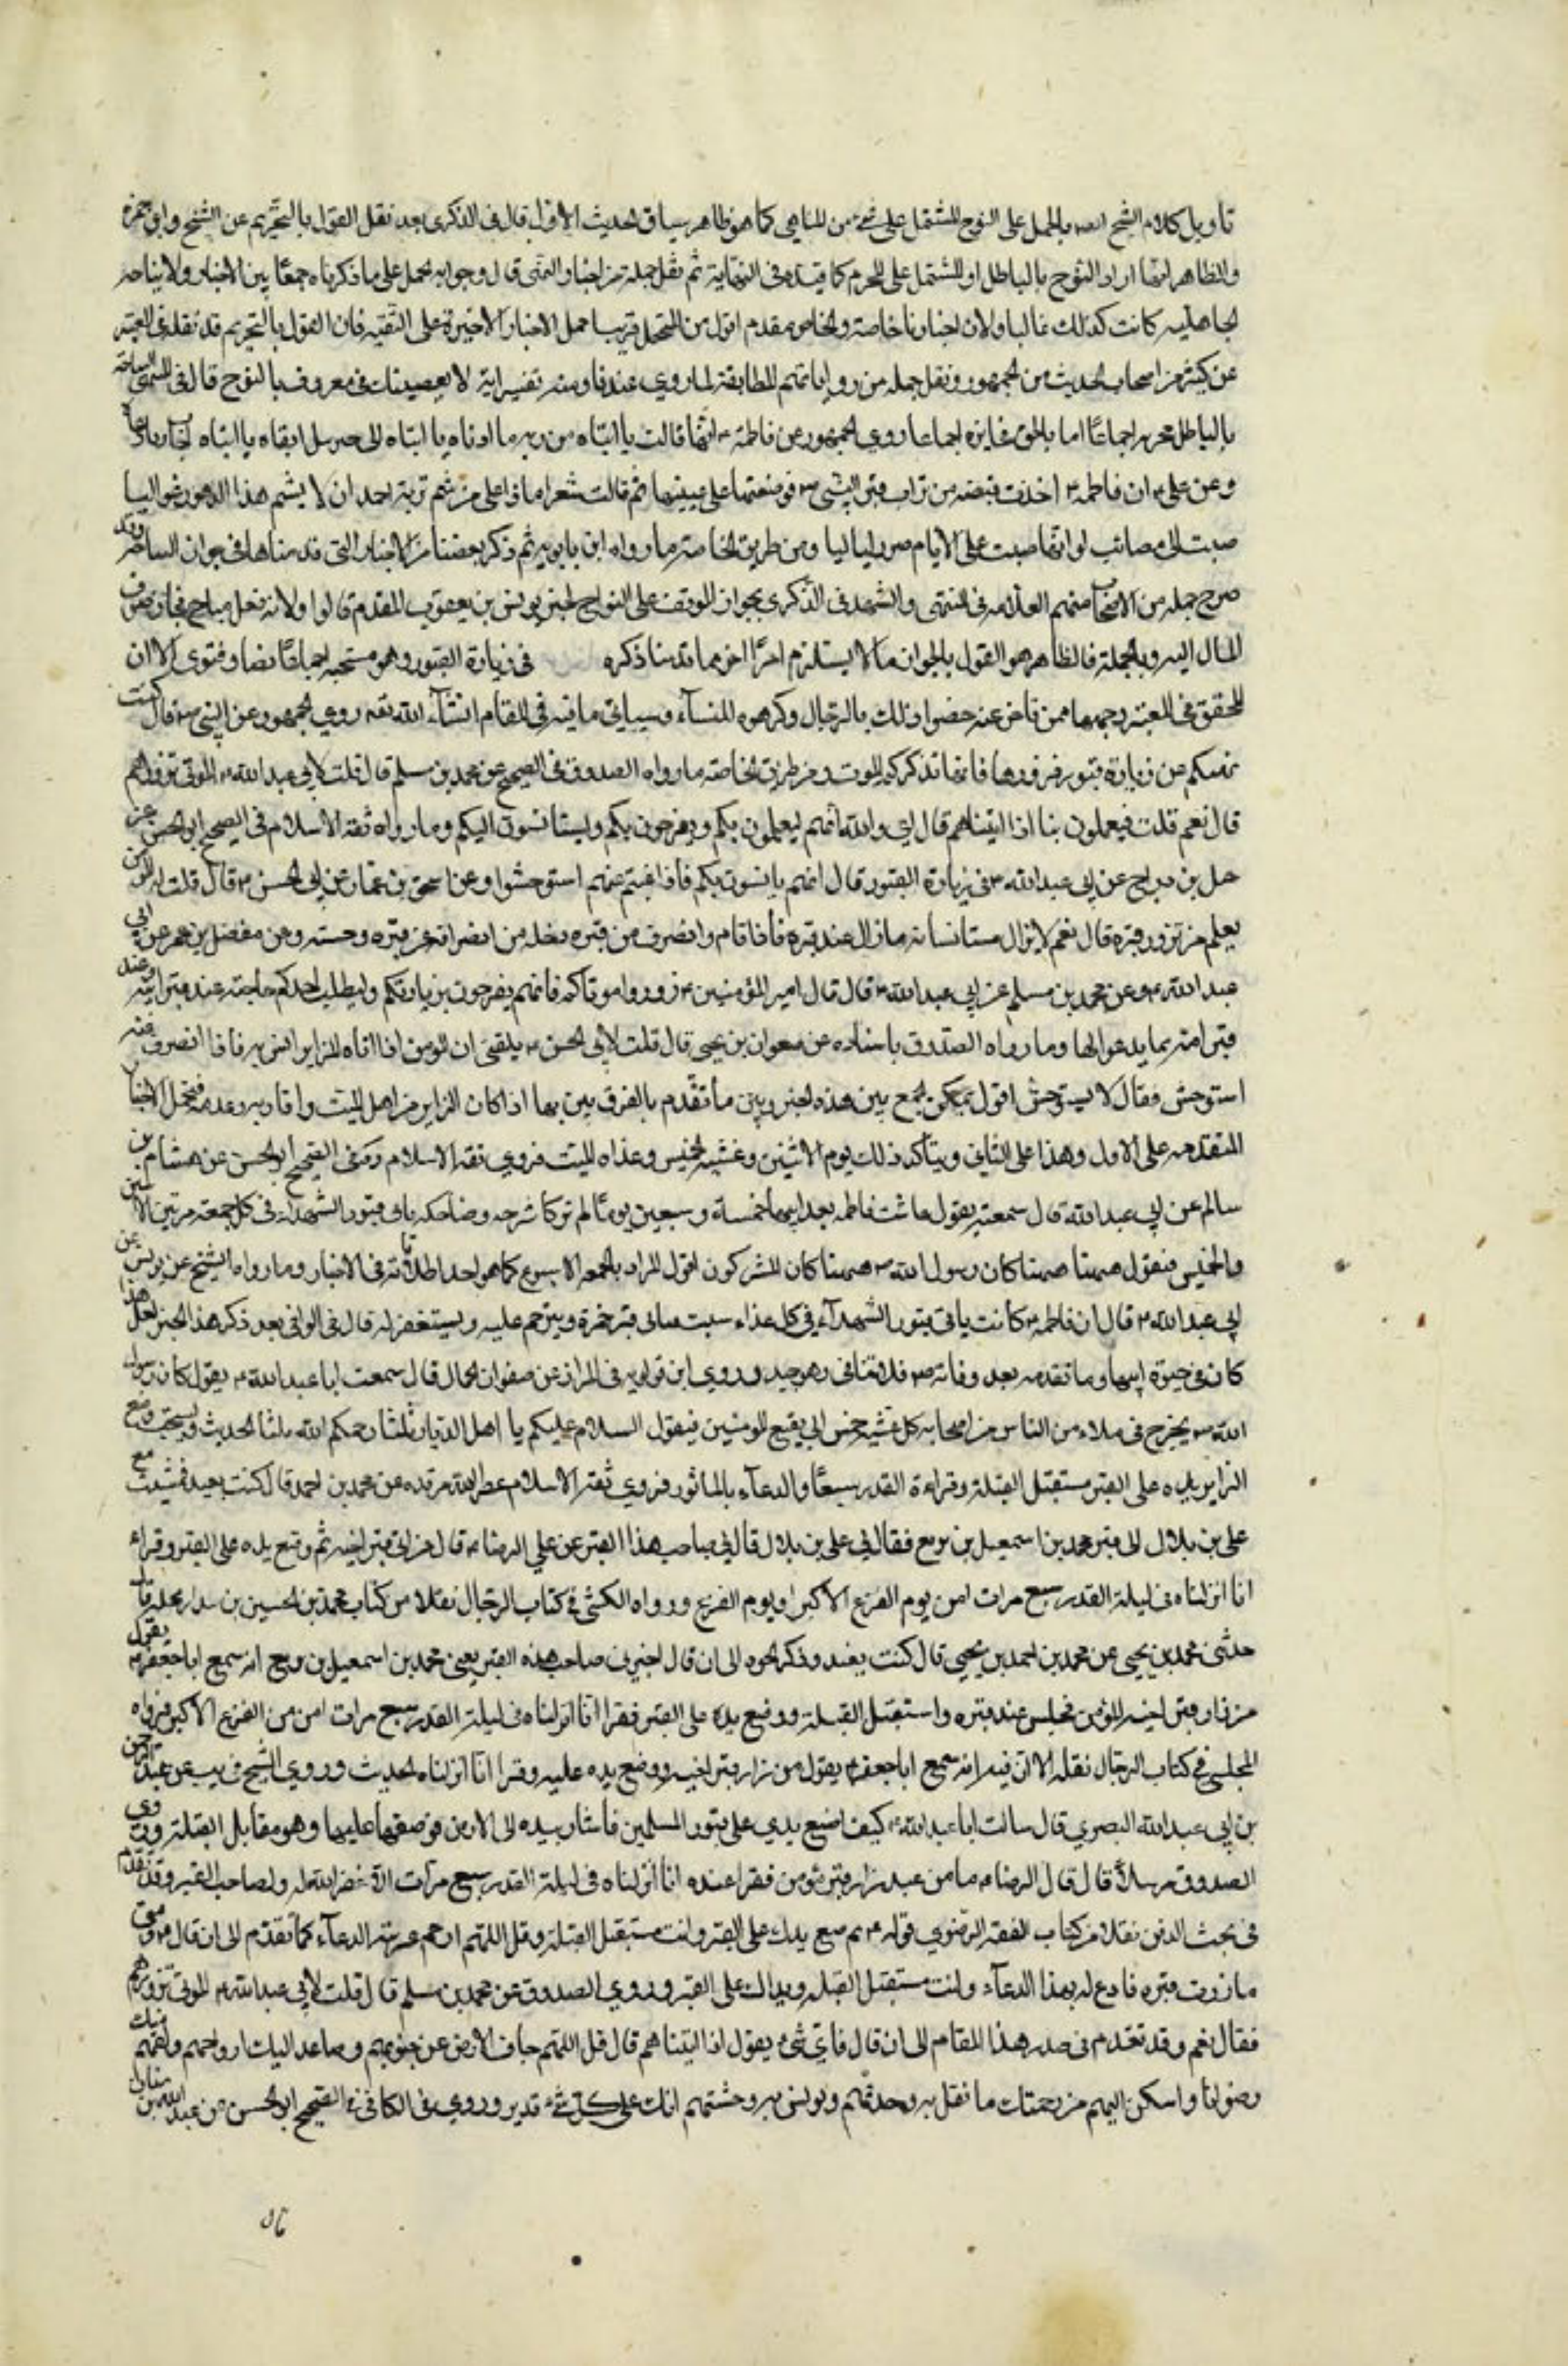 تأويل كلام الشيخ بالحمل على النوح المشتمل على شيء من المناهي كما هو ظاهر سياق الحديث الاول قال في الذكرى بعد نقل القول بالتحريم عن الشيخ وابن حمزة
والظاهر انهما ارادا النوح بالباطل او المشتمل على المحرم كما قيده في النهاية ثم نقل جملة من اخبار النهي قال وجوابه الحمل على ما ذكرناه جمعا بين الاخبار ولان نياحة
الجاهلية كانت كذلك غالبا ولان اخبارنا خاصة والخاص مقدم اقول من المحتمل قريبا حمل الاخبار الاخيرة على التقية فان القول بالتحريم قد نقله في المعتبر
عن كثير من اصحاب الحديث من الجمهور ونقل جملة من رواياتهم المطابقة لما روي عندنا ومنه تفسير اية لا يعصينك في معروف بالنوح قال في المنتهى النياحة
بالباطل محرمه اجماعا اما بالحق فجايزة اجماعا روى الجمهور عن فاطمة انها قالت يا ابتاه من ربه ما ادناه يا ابتاه الى جبرئيل انعاه يا ابتاه اجاب ربا دعاه
وعن علي ان فاطمة اخذت قبضة من تراب قبر النبي فوضعتها على عينيها ثم قالت شعرا ماذا على من شم تربة احمد ان لا يشم مدا الدهور غواليا
صبت علي مصائب لو انها صبت على الايام صرن لياليا ومن طريق الخاصة ما رواه ابن بابويه ثم ذكر بعضا من الاخبار التي قدمناها في جواز النياحة وقد
صرح جملة من الاصحاب منهم العلامه في المنتهى والشهيد في الذكرى بجواز الوقف على النوايح لخبر يونس بن يعقوب المقدم قالوا ولانه فعل مباح فجاز صرف
المال اليه وبالجملة فالظاهر هو القول بالجواز ما لا يستلزم امرا اخر مما قدمنا ذكره في زيارة القبور وهو مستحبه اجماعا نصا وفتوى الا ان
المحقق في المعتبر وجمعا ممن تاخر عنه خصوا ذلك بالرجال وكرهوه للنسآء وسياتي ما فيه في المقام انشآء الله تعه روى الجمهور عن النبي قال كنت
نهيتكم عن زيارة قبور فزوروها فانها تذكركم الموت ومن طريق الخاصه ما رواه الصدوق في الصحيح عن محمد بن مسلم قال قلت لابي عبد الله الموتى نزورهم
قال نعم قلت فيعلمون بنا اذا اتيناهم قال اي والله انهم ليعلمون بكم ويفرحون بكم ويستانسون اليكم وما رواه ثقة الاسلام في الصحيح او الحسن عن
جميل بن دراج عن ابي عبد الله في زيارة القبور قال انهم يانسون بكم فاذا غبتم عنهم استوحشوا وعن اسحق بن عمار عن ابي الحسن قال قلت له المؤمن
يعلم من يزور قبره قال نعم لا يزال مستانسا به ما زال عند قبره فاذا قام وانصرف من قبره دخله من انصرافه عن قبره وحشه وعن مفضل بن عمر عن ابي
عبد الله وعن محمد بن مسلم عن ابي عبد الله قال قال امير المؤمنين زوروا موتاكم فانهم يفرحون بزيارتكم وليطلب احدكم حاجته عند قبر ابيه وعند
قبر امه بما يدعو لها وما رواه الصدوق باسناده عن صفوان بن يحيى قال قلت لابي الحسن بلغني ان المؤمن اذا اتاه الزاير انس به فاذا انصرف عنه
استوحش فقال لا يستوحش اقول يمكن الجمع بين هذه الخبر وبين ما تقدم بالفرق بين ما اذا كان الزاير من اهل الميت واقاربه وعدمه فتحمل الاخبار
المتقدمه على الاول وهذا على الثاني ويتأكد ذلك يوم الاثنين وعشيه الخميس وغداه السبت فروي ثقة الاسلام في الصحيح او الحسن عن هشام بن
سالم عن ابي عبد الله قال سمعته يقول عاشت فاطمه بعد ابيها خمسة وسبعين يوما لم تر كاشره وضاحكه تاتي قبور الشهداء في كل جمعة مرتين الاثنين
والخميس فتقول هيهنا كان رسول الله هيهنا كان المشركون اقول المراد بالجمعه الاسبوع كما هو احد اطلاقاته في الاخبار وما رواه الشيخ عن يونس عن
ابي عبد الله قال ان فاطمة كانت ياتي قبور الشهدآء في كل غداه سبت فتاتي قبر حمزة وتترحم عليه ويستغفر له قال في الوافي بعد ذكر هذا الخبر لعل هذا
كان في حيوة ابيها وما تقدم بعد وفاته فلا تنافي وهو جيد وروى ابن قولويه في المزار عن صفوان الجمال قال سمعت ابا عبد الله يقول كان رسول
الله يخرج في ملاء من الناس من اصحابه كل عشية خميس الى بقيع المؤمنين فيقول السلام عليكم يا اهل الديار ثلثا رحمكم الله ثلثا الحديث ويستحب وضع
الزاير يده على القبر مستقبل القبلة وقراءة القدر سبعا والدعآء بالماثور فروي ثقة الاسلام عطر الله مرقده عن محمد بن احمد قال كنت بفيد فمشيت مع
علي بن بلال الى قبر محمد بن اسمعيل بن بزيع فقال لي علي بن بلال قال لي صاحب هذا القبر عن علي الرضا قال من اتى قبر اخيه ثم وضع يده على القبر وقراء
انا انزلناه في ليلة القدر سبع مرات امن يوم الفزع الاكبر او يوم الفزع ورواه الكشي في كتاب الرجال نقلا من كتاب محمد بن الحسين بن بندار بخطه قال
حدثني محمد بن يحيى عن محمد بن احمد بن يحيى قال كنت بفيد وذكر نحوه الى ان قال اخبرني صاحب هذه القبر يعني محمد بن اسمعيل بن بزيع انه سمع ابا جعفر يقول
من زار قبر اخيه المؤمن فجلس عند قبره واستقبل القبلة ووضع يده على القبر فقرا انا انزلناه في ليلة القدر سبع مرات امن من الفزع الاكبر ورواه
في كتاب الرجال نقله الا ان فيه انه سمع ابا جعفر يقول من زار قبر اخيه ووضع يده عليه وقرا انا انزلناه الحديث وروى الشيخ في يب عن عبد الرحمن
بن ابي عبد الله البصري قال سالت ابا عبد الله كيف اضع يدي على قبور المسلمين فأشار بيده الى الارض فوضعها عليها وهو مقابل القبلة وروى
الصدوق مرسلا قال قال الرضا ما من عبد زار قبر مؤمن فقرا عنده انا انزلناه في ليلة القدر سبع مرات الا غفر الله له ولصاحب القبر وقد تقدم
في بحث الدفن نقلا من كتاب الفقه الرضوي قوله ثم ضع يدك على القبر وانت مستقبل القبلة وقل اللهم ارحم غربته الدعآء كما تقدم الى ان قال ومتى
ما زرت قبره فادع له بهذا الدعآء وانت مستقبل القبله ويداك على القبر وروى الصدوق عن محمد بن مسلم قال قلت لابي عبد الله الموتى نزورهم
فقال نعم وقد تقدم في صدر هذا المقام الى ان قال فاي شيء يقول اذا اتيناهم قال قل اللهم جاف الارض عن جنوبهم وصاعد اليك ارواحهم ولقهم منك
رضوانا واسكن اليهم من رحمتك ما تصل به وحدتهم وتونس به وحشتهم انك على كل شيء قدير وروي في الكافي في الصحيح او الحسن عن عبد الله بن سنان
قال